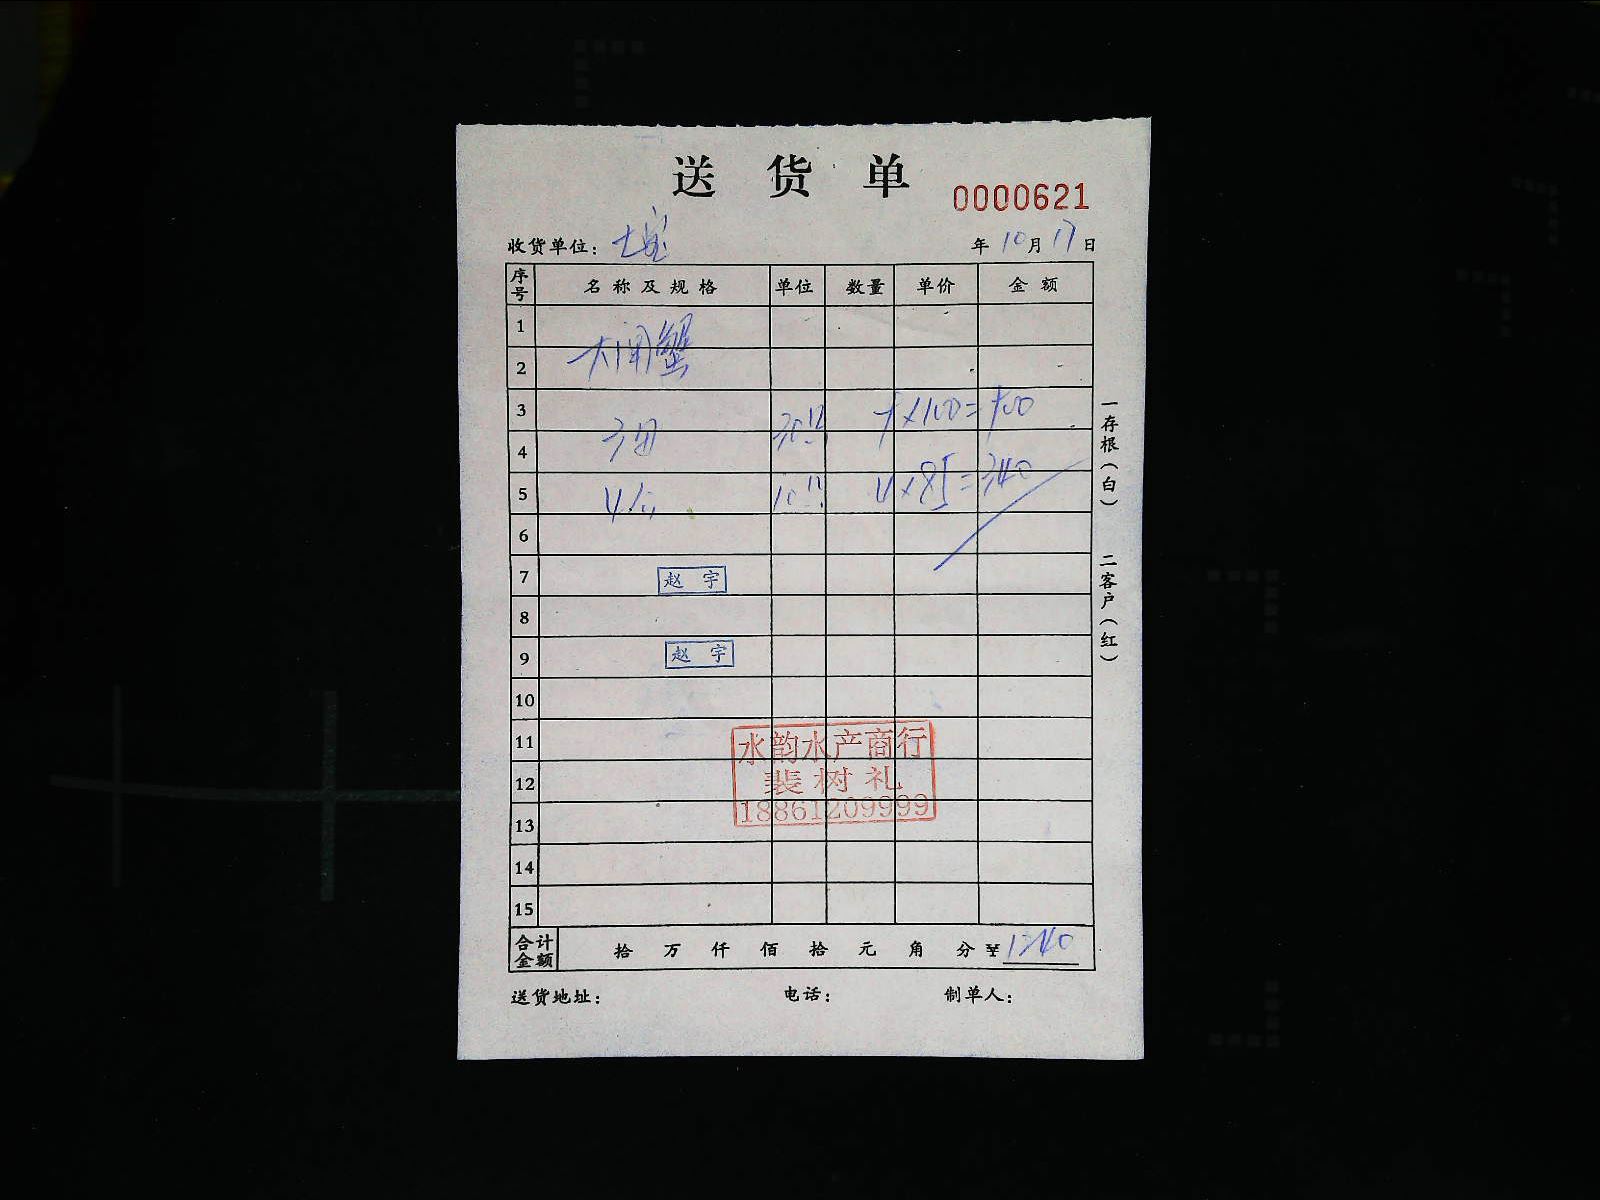 送货单
0000621
收货单位：七宝 年10月17日
序号 名称及规格 单位 数量 单价 金额
1
大闸蟹
2
3
30只 ×100=
4
5
10只 4×85=340
6
7 赵宇
8
9 赵宇
10
11
12
13
14
15
水韵水产商行
裴树礼
18861209999
合计金额 拾 万 仟 佰 拾 元 角 分 ¥1240
送货地址： 电话： 制单人：
一存根（白） 二客户（红）